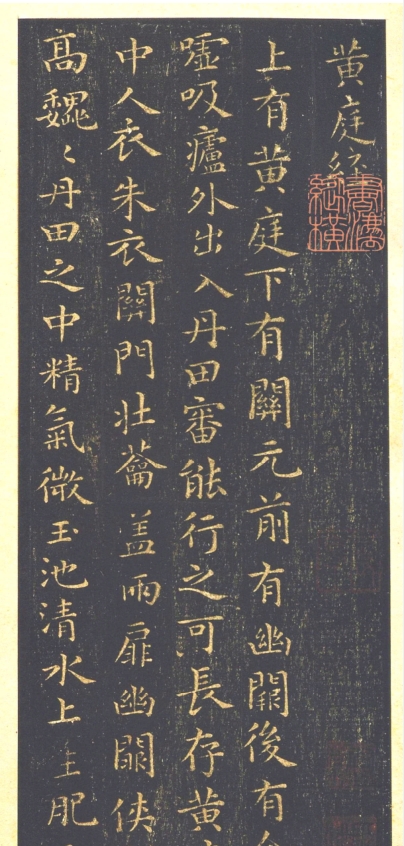 黄庭經
上有黄庭下有關元前有幽闕後有
嘘吸廬外出入丹田審能行之可長存黄
中人衣朱衣關門壯蘥盖兩扉幽闕俠
高魏〻丹田之中精氣微玉池清水上生肥